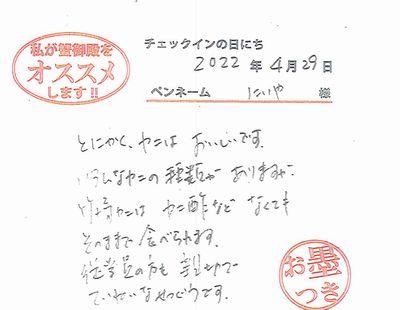 私が蟹御殿を
オススメ
します!!
チェックインの日にち
2022年4月29日
ペンネーム にいや 様
とにかく、カニは おいしいです。
いろんなカニの種類が ありますが、
竹崎カニは カニ酢など なくても
そのままで 食べられます。
従業員の方も 親切で
ていねいなせつぐうです。
お墨
つき